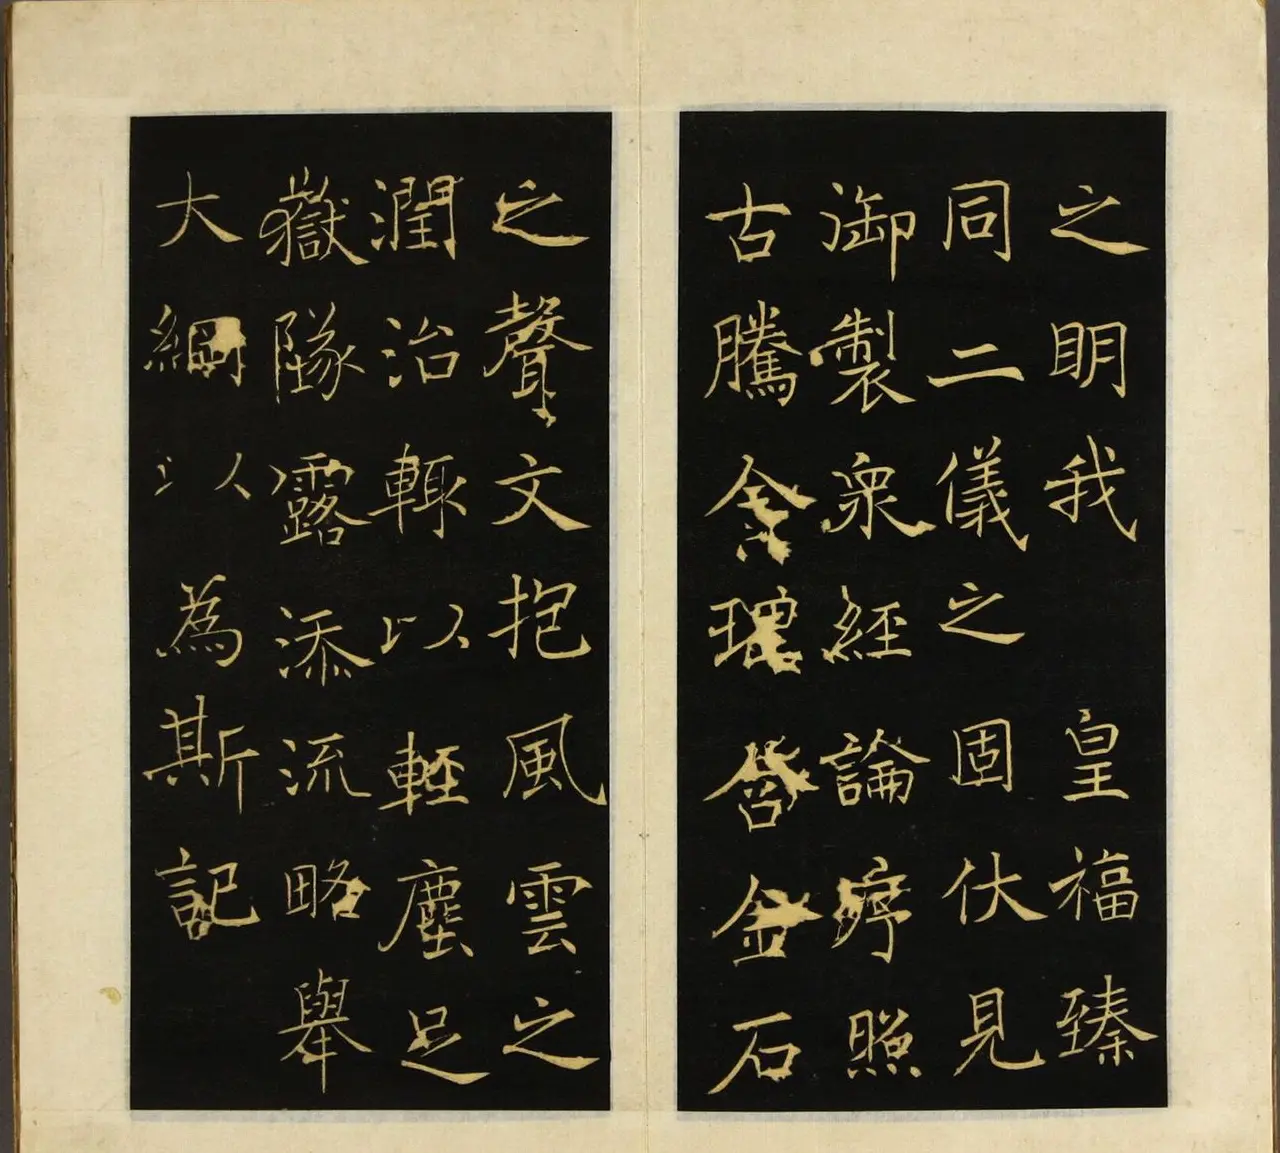 之明我　皇福臻
同二儀之固伏見
御製衆經論序照
古騰今理含金石
之聲文抱風雲之
潤治輒以輕塵足
嶽隊露添流略舉
大綱以為斯記